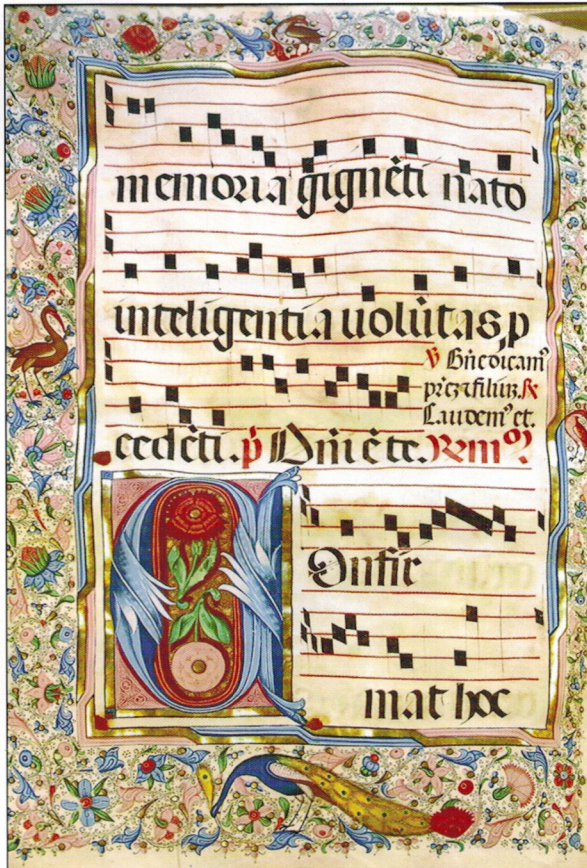 memoria gignẽti nato
inteligentia uolũtas p
℣ Bñedicam⁹
prẽz ⁊ filiũz. ℟
Laudem⁹ et.
cedẽti. p̃ Dñi ẽte.
Onfir
mat hoc